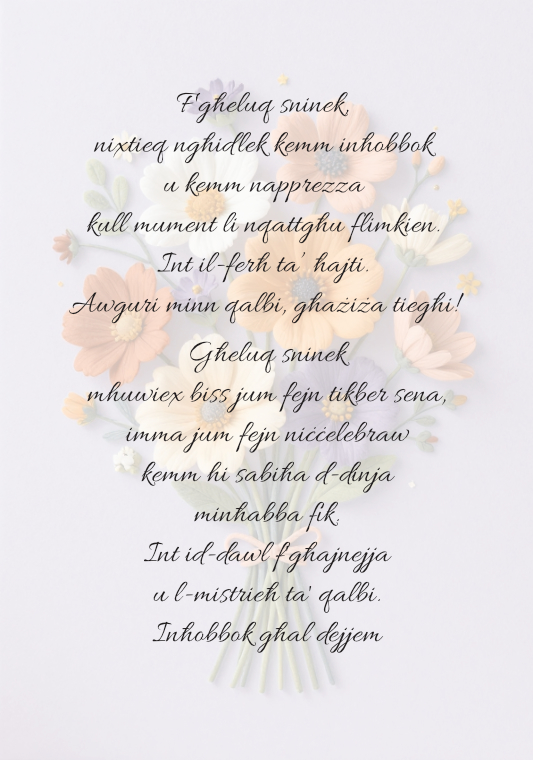 F'għeluq sninek,
nixtieq ngħidlek kemm inħobbok
u kemm napprezza
kull mument li nqattgħu flimkien.
Int il-ferħ ta' ħajti.
Awguri minn qalbi, għażiża tiegħi!
Għeluq sninek
mhuwiex biss jum fejn tikber sena,
imma jum fejn niċċelebraw
kemm hi sabiħa d-dinja
minħabba fik.
Int id-dawl f'għajnejja
u l-mistrieħ ta' qalbi.
Inħobbok għal dejjem